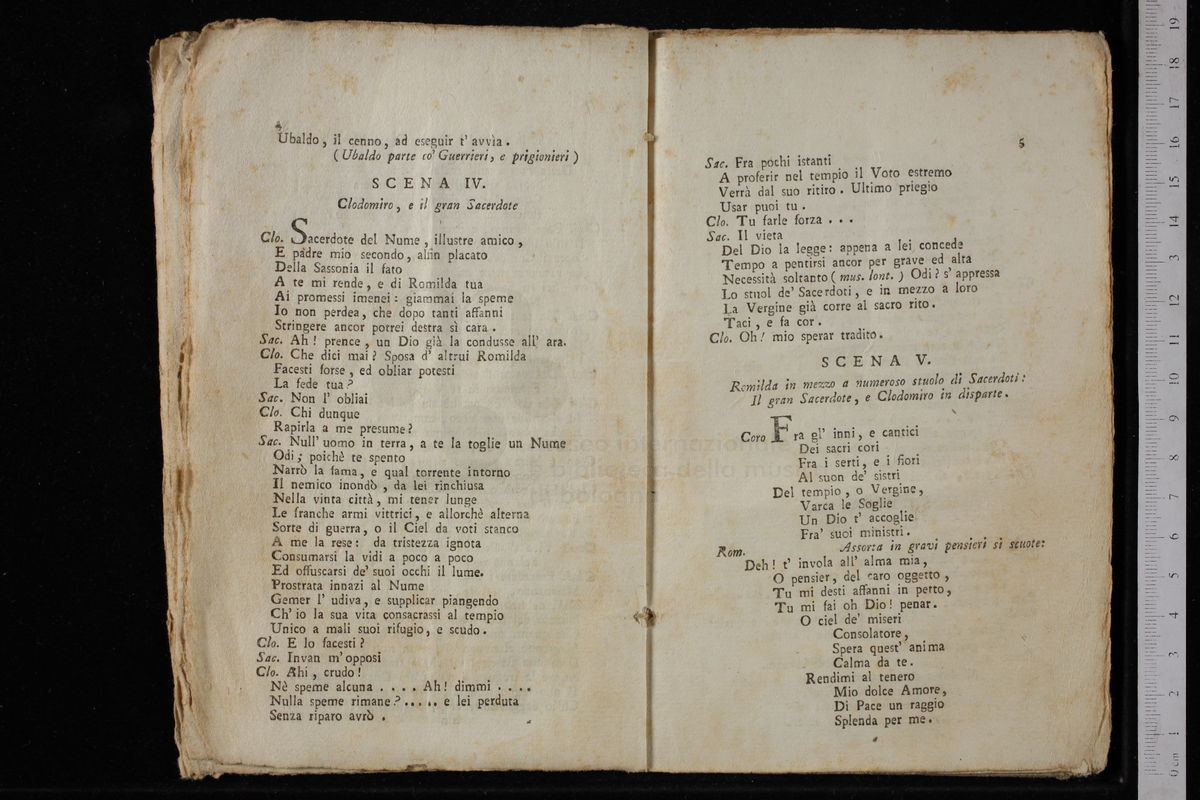 4
Ubaldo, il cenno, ad eseguir t' avvia.
(Ubaldo parte co' Guerrieri, e prigionieri)
SCENA IV.
Clodomiro, e il gran Sacerdote
Clo. Sacerdote del Nume, illustre amico,
E padre mio secondo, alfin placato
Della Sassonia il fato
A te mi rende, e di Romilda tua
Ai promessi imenei: giammai la speme
Io non perdea, che dopo tanti affanni
Stringere ancor potrei destra sì cara.
Sac. Ah! prence, un Dio già la condusse all' ara.
Clo. Che dici mai? Sposa d' altrui Romilda
Facesti forse, ed obliar potesti
La fede tua?
Sac. Non l' obliai
Clo. Chi dunque
Rapirla a me presume?
Sac. Null' uomo in terra, a te la toglie un Nume
Odi; poichè te spento
Narrò la fama, e qual torrente intorno
Il nemico inondò, da lei rinchiusa
Nella vinta città, mi tener lunge
Le franche armi vittrici, e allorchè alterna
Sorte di guerra, o il Ciel da voti stanco
A me la rese: da tristezza ignota
Consumarsi la vidi a poco a poco
Ed offuscarsi de' suoi occhi il lume.
Prostrata innazi al Nume
Gemer l' udiva, e supplicar piangendo
Ch' io la sua vita consacrassi al tempio
Unico a mali suoi rifugio, e scudo.
Clo. E lo facesti?
Sac. Invan m' opposi
Clo. Ahi, crudo!
Nè speme alcuna . . . . Ah! dimmi . . . .
Nulla speme rimane? . . . . . e lei perduta
Senza riparo avrò.
5
Sac. Fra pochi istanti
A proferir nel tempio il Voto estremo
Verrà dal suo ritiro. Ultimo priego
Usar puoi tu.
Clo. Tu farle forza . . .
Sac. Il vieta
Del Dio la legge: appena a lei concede
Tempo a pentirsi ancor per grave ed alta
Necessità soltanto (mus. lont.) Odi? s' appressa
Lo stuol de' Sacerdoti, e in mezzo a loro
La Vergine già corre al sacro rito.
Taci, e fa cor.
Clo. Oh! mio sperar tradito.
SCENA V.
Romilda in mezzo a numeroso stuolo di Sacerdoti:
Il gran Sacerdote, e Clodomiro in disparte.
Coro Fra gl' inni, e cantici
Dei sacri cori
Fra i serti, e i fiori
Al suon de' sistri
Del tempio, o Vergine,
Varca le Soglie
Un Dio t' accoglie
Fra' suoi ministri.
Rom. Assorta in gravi pensieri si scuote:
Deh! t' invola all' alma mia,
O pensier, del caro oggetto,
Tu mi desti affanni in petto,
Tu mi fai oh Dio! penar.
O ciel de' miseri
Consolatore,
Spera quest' anima
Calma da te.
Rendimi al tenero
Mio dolce Amore,
Di Pace un raggio
Splenda per me.
museo internazionale
e biblioteca della musica
di bologna
0 cm 1 2 3 4 5 6 7 8 9 10 11 12 13 14 15 16 17 18 19